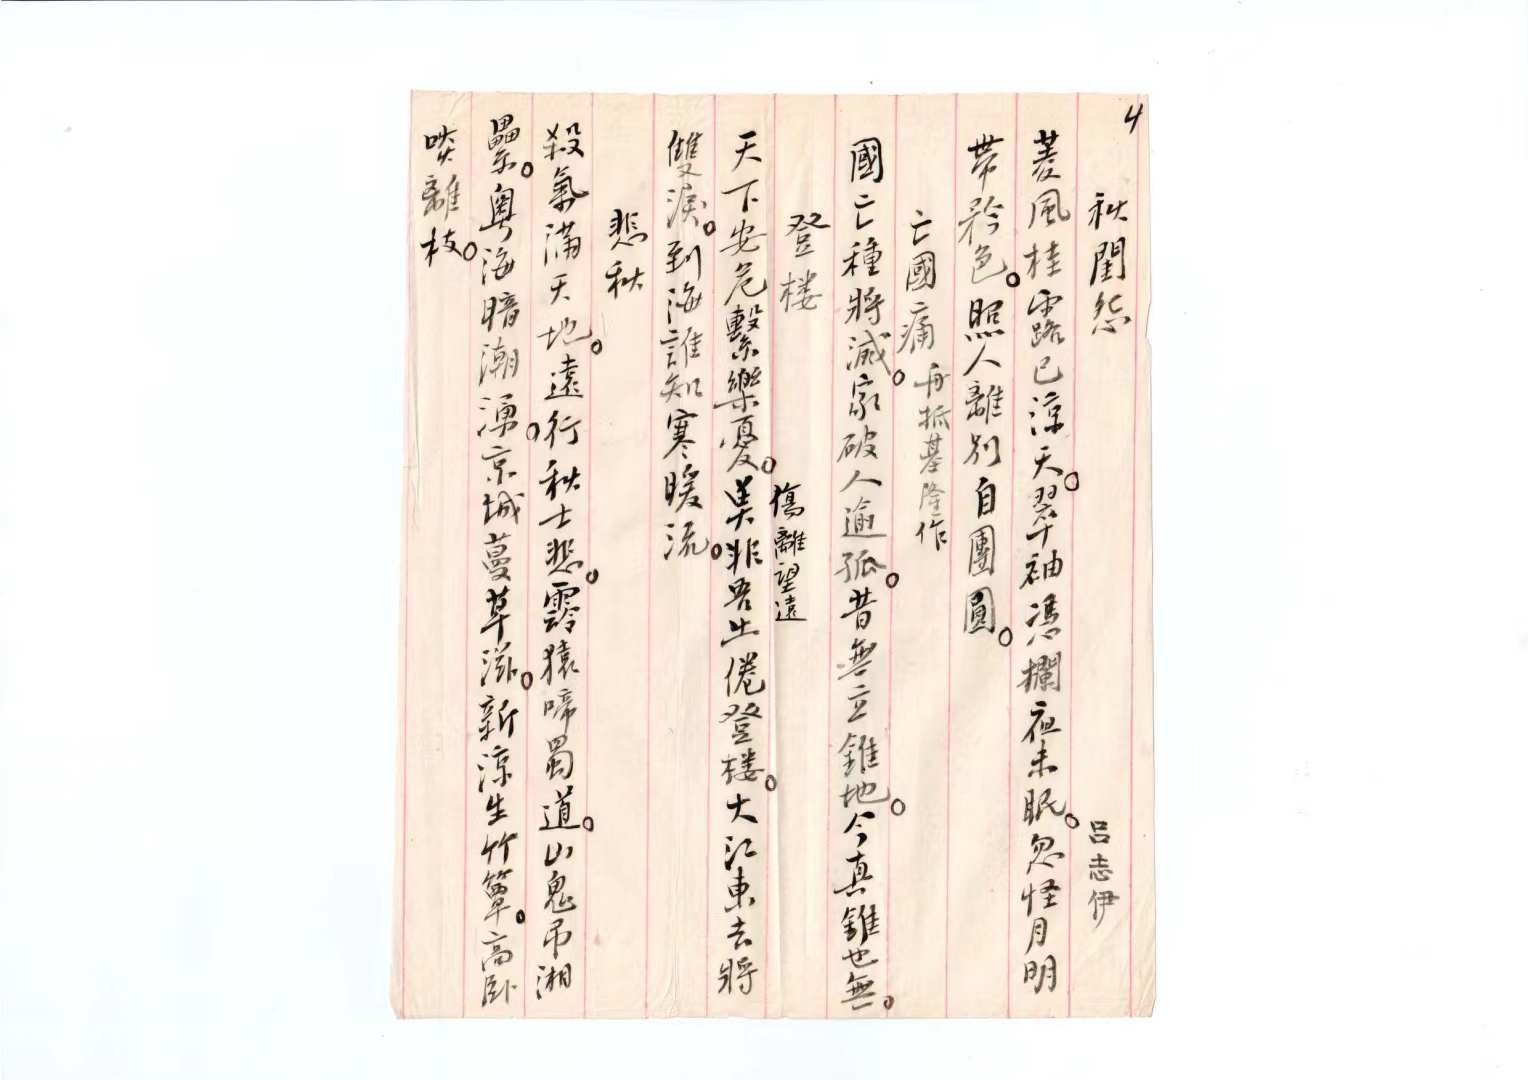 4
秋閨怨
呂志伊
菱風桂露已涼天。翠袖憑欄夜未眠。忽怪月明
帶矜色。照人離别自團圓。
亡國痛 再抵基隆作
國亡種將滅。家破人逾孤。昔無立錐地。今真錐也無。
登楼 傷離望遠
天下安危繫樂憂。美非吾土倦登楼。大江東去將
雙淚。到海誰知寒暖流。
悲秋
殺氣滿天地。遠行秋士悲。霛猿啼蜀道。山鬼吊湘
纍。粵海暗潮湧。京城蔓草滋。新涼生竹簟。高卧
啖離枝。